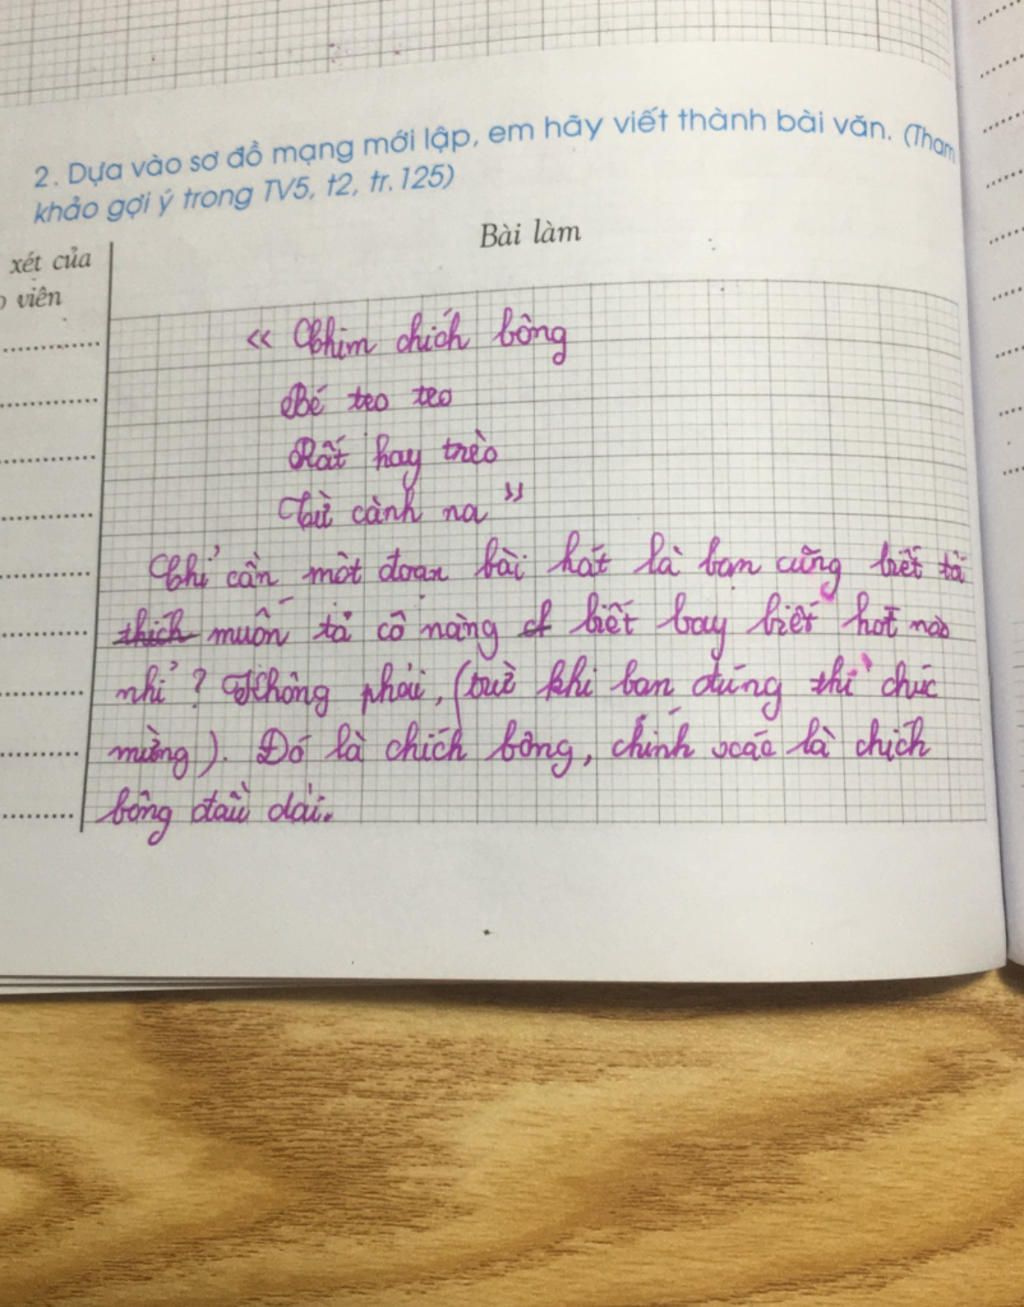 2. Dựa vào sơ đồ mạng mới lập, em hãy viết thành bài văn. (Tham
khảo gợi ý trong TV5, t2, tr.125)
Bài làm
xét của
viên
« Chim chích bông
Bé teo teo
Rất hay trèo
Từ cành na »
Chỉ cần một đoạn bài hát là bạn cũng biết tớ
thích muốn tả cô nàng biết bay biết hót nào
nhỉ? Không phải, (trừ khi bạn đúng thì chúc
mừng). Đó là chích bông, chính xác là chích
bông đầu dài.